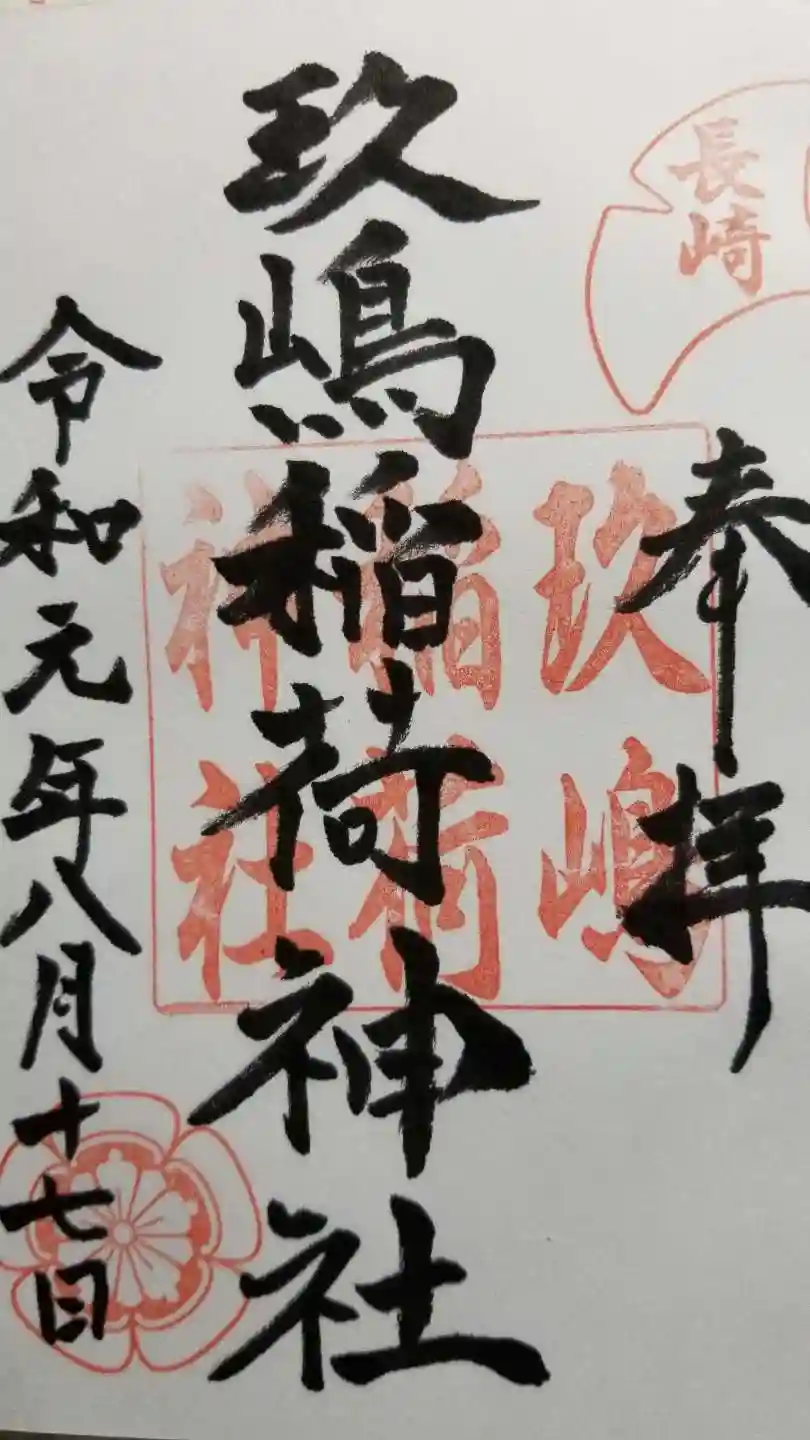 長崎
奉拝
玖嶋
稲荷
神社
玖嶋稲荷神社
令和元年八月十七日